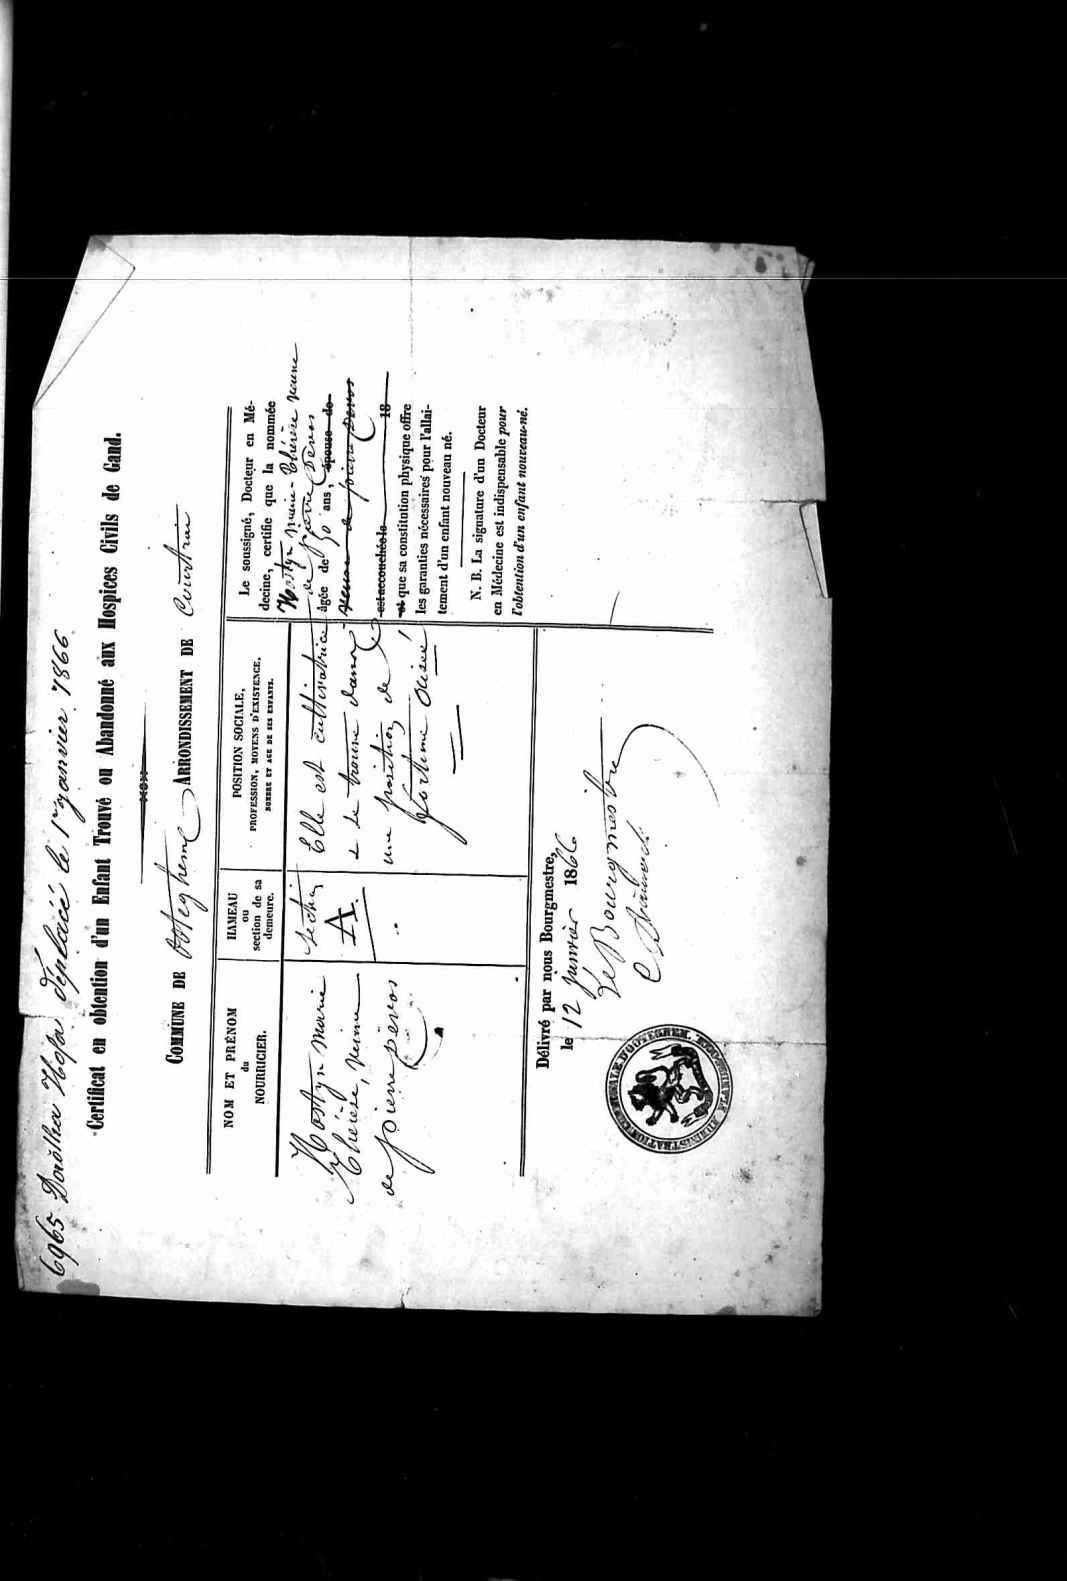 6965 Dorothea Hofa déplacée le 1er janvier 1866
Certificat en obtention d'un Enfant Trouvé ou Abandonné aux Hospices Civils de Gand.
COMMUNE DE Ooteghem ARRONDISSEMENT DE Courtrai
NOM ET PRÉNOM
du
NOURRICIER.
Hostyn marie
Thérèse, veuve
de pierre Devos
HAMEAU
ou
section de sa
demeure.
section
A.
POSITION SOCIALE,
PROFESSION, MOYENS D'EXISTENCE,
NOMBRE ET AGE DE SES ENFANTS.
Elle est cultivatrice
& se trouve dans
une position de
fortune aisée
Le soussigné, Docteur en Mé-
decine, certifie que la nommée
Hostyn marie-Thérèse veuve
de pierre Devos
âgée de 50 ans, épouse de
veuve de pierre Devos
est accouchée le 18
et que sa constitution physique offre
les garanties nécessaires pour l'allai-
tement d'un enfant nouveau né.
N. B. La signature d'un Docteur
en Médecine est indispensable pour
l'obtention d'un enfant nouveau-né.
Délivré par nous Bourgmestre,
le 12 janvier 1866
Le Bourgmestre
ADMINISTRATION COMMUNALE D'OOTEGHEM.